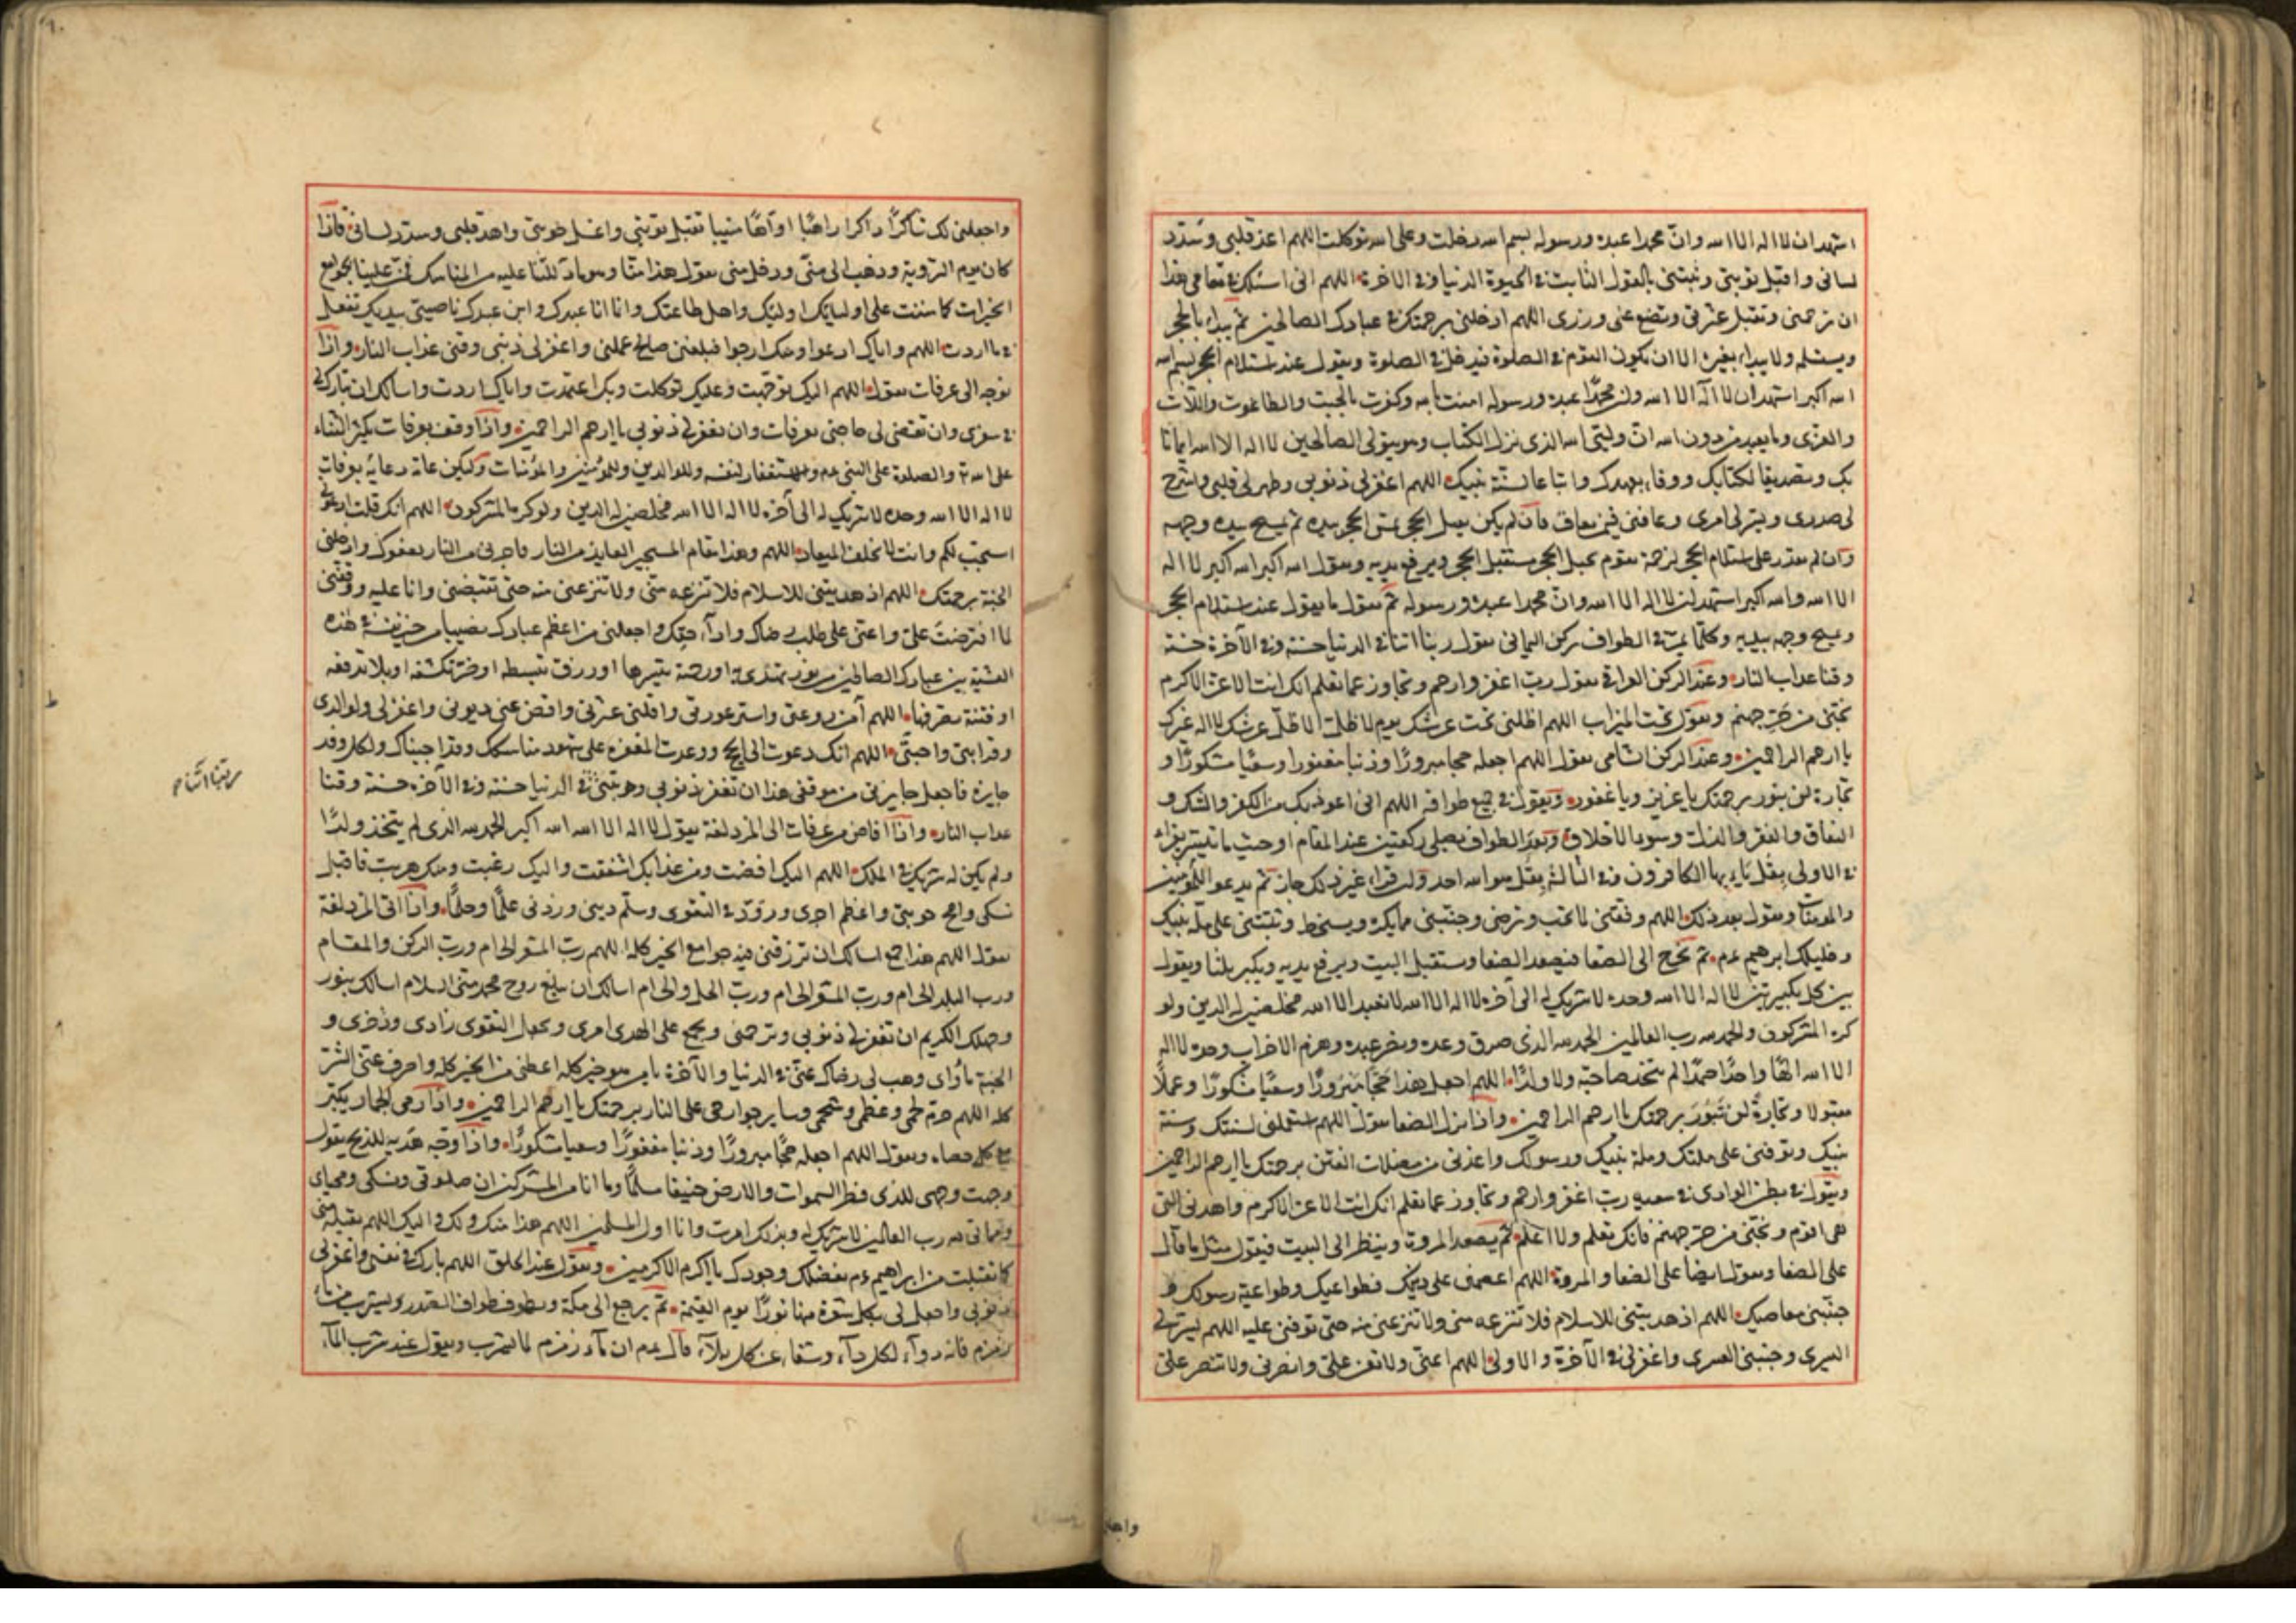 اشهد ان لا اله الا الله وان محمدا عبده ورسوله بسم الله دخلت وعلى الله توكلت اللهم اهد قلبى وسدد
لسانى واقبل توبتى وثبتنى بالقول الثابت فى الحيوة الدنيا وفى الاخرة اللهم انى اسئلك فى مقامى هذا
ان ترحمنى وتقبل عثرتى وتضع عنى وزرى اللهم ادخلنى برحمتك فى عبادك الصالحين ثم يبداء بالحجر
ويستلمه ولا يبداء بغيره الا ان يكون القوم فى الصلوة فيدخل فى الصلوة ويقول عند استلام الحجر بسم الله
الله اكبر اشهد ان لا اله الا الله وان محمدا عبده ورسوله امنت بالله وكفرت بالجبت والطاغوت واللات
والعزى وما يعبد من دون الله ان وليى الله الذى نزل الكتاب وهو يتولى الصالحين لا اله الا الله ايمانا
بك وتصديقا لكتابك ووفاء بعهدك واتباعا لسنة نبيك اللهم اغفر لى ذنوبى وطهر لى قلبى واشرح
لى صدرى ويسر لى امرى وعافنى فيمن تعاف فان لم يكن يقبل الحجر يمس الحجر بيده ثم يمسح بيده وجهه
وان لم يقدر على استلام الحجر لزحمة يقوم بحبل الحجر مستقبل الحجر ويرفع يديه ويقول الله اكبر الله اكبر لا اله
الا الله والله اكبر اشهد ان لا اله الا الله وان محمدا عبده ورسوله ثم يقول ما يقول عند استلام الحجر
ويمسح وجهه بيديه وكلما يمر فى الطواف بركن اليمانى يقول ربنا اتنا فى الدنيا حسنة وفى الآخرة حسنة
وقنا عذاب النار وعند الركن العراقى يقول رب اغفر وارحم وتجاوز عما تعلم انك انت الاعز الاكرم
نجنى من حر جهنم ويقول تحت الميزاب اللهم اظلنى تحت عرشك يوم لا ظل الا ظل عرشك لا اله غيرك
يا ارحم الراحمين وعند الركن الشامى يقول اللهم اجعله حجا مبرورا وذنبا مغفورا وسعيا مشكورا و
تجارة لن تبور برحمتك يا عزيز ويا غفور ويقول فى جميع طوافه اللهم انى اعوذ بك من الكفر والشك و
النفاق والفقر والذلة وسوء الاخلاق وبعد الطواف يصلى ركعتين عند المقام او حيث ما تيسر يقراء
فى الاولى بقل يا ايها الكافرون وفى الثانية بقل هو الله احد ولو قراء غير ذلك جاز ثم يدعو للمؤمنين
والمؤمنات ويقول بعد ذلك اللهم وفقنى لما تحب وترضى وجنبنى مما يكره ويسخط وثبتنى على ملة نبيك
وخليلك ابرهيم عم ثم يخرج الى الصفا فيصعد الصفا ويستقبل البيت ويرفع يديه ويكبر ثلثا ويقول
بين كل تكبيرتين لا اله الا الله وحده لا شريك له الى آخره لا اله الا الله لا نعبد الا الله مخلصين له الدين ولو
كره المشركون والحمد لله رب العالمين الحمد لله الذى صدق وعده ونصر عبده وهزم الاحزاب وحده لا اله
الا الله الها واحدا صمدا لم يتخذ صاحبة ولا ولدا اللهم اجعل هذا حجا مبرورا وسعيا مشكورا وعملا
مقبولا وتجارة لن تبور برحمتك يا ارحم الراحمين واذا نزل الصفا يقول اللهم استعملنى لسنتك وسنة
نبيك وتوفنى على ملتك وملة نبيك ورسولك واعذنى من مضلات الفتن برحمتك يا ارحم الراحمين
ويقول فى بطن الوادى فى سعيه رب اغفر وارحم وتجاوز عما تعلم انك انت الاعز الاكرم واهدنى للتى
هى اقوم ونجنى من حر جهنم فانك تعلم ولا اعلم ثم يصعد المروة وينظر الى البيت فيقول مثل ما قال
على الصفا ويقول ايضا على الصفا والمروة اللهم اعصمنى على دينك وطواعيك وطواعية رسولك و
جنبنى معاصيك اللهم اذ هديتنى للاسلام فلا تنزعه منى ولا تنزعنى منه حتى توفنى عليه اللهم يسر لى
اليسرى وجنبنى العسرى واغفر لى فى الآخرة والاولى اللهم اعنى ولا تعن على وانصرنى ولا تنصر على
واجعلـ
واجعلنى لك شاكرا ذاكرا راهبا اواها منيبا تقبل توبتى واغسل حوبتى واهد قلبى وسدد لسانى فاذا
كان يوم التروية وذهب الى منى ودخل منى يقول هذا منا وهو ما دللتنا عليه من المناسك فمن علينا بجوامع
الخيرات كما مننت على اوليائك واهل طاعتك وانا انا عبدك وابن عبدك ناصيتى بيديك تفعل
فى ما اردت اللهم واياك ادعوا ومنك ارجوا فبلغنى صالح عملى واغفر لى ذنبى وقنى عذاب النار واذا
توجه الى عرفات يقول اللهم اليك توجهت وعليك توكلت وبك اعتمدت واياك اردت واسالك ان تبارك لى
فى سفرى وان تقضى لى حاجتى بعرفات وان تغفر لى ذنوبى يا ارحم الراحمين واذا وقف بعرفات يكثر الثناء
على الله تع والصلوة على النبى عم والاستغفار لنفسه وللوالدين وللمؤمنين والمؤمنات وليكن عامة دعائه بعرفات
لا اله الا الله وحده لا شريك له الى آخره لا اله الا الله مخلصين له الدين ولو كره المشركون اللهم انك قلت ادعونى
استجب لكم وانت لا تخلف الميعاد اللهم وهذا مقام المستجير العايذ من النار فاجرنى من النار بعفوك وادخلنى
الجنة برحمتك اللهم اذ هديتنى للاسلام فلا تنزعه منى ولا تنزعنى منه حتى تقبضنى وانا عليه ووفقنى
لما افترضت على واعنى على طلب رضاك واداء حقك واجعلنى من اعظم عبادك نصيبا من خير فى هذه
العشية بين عبادك الصالحين من نور تهدى به او رحمة تنشرها او رزق تبسطه او ضر تكشفه او بلاء تدفعه
او فتنة تصرفها اللهم آمن روعتى واستر عورتى واقلنى عثرتى واقض عنى ديونى واغفر لى ولوالدى
وقرابتى واحبتى اللهم انك دعوت الى الحج ووعدت المغفرة على شهود مناسكك وقد اجبناك ولكل وفد
جايزة فاجعل جايزتى من موقفى هذا ان تغفر ذنوبى وهب لى فى الدنيا حسنة وفى الآخرة حسنة وقنا
ربنا اتنا
عذاب النار واذا افاض من عرفات الى المزدلفة يقول لا اله الا الله الله اكبر الحمد لله الذى لم يتخذ ولدا
ولم يكن له شريك فى الملك اللهم اليك افضت ومن عذابك اشفقت واليك رغبت ومنك هربت فاقبل
نسكى وامح حوبتى واعظم اجرى وزودنى التقوى وسلم دينى وزدنى علما وحلما واذا اتى المزدلفة
يقول اللهم هذا جمع اسالك ان ترزقنى فيه جوامع الخير كله اللهم رب المشعر الحرام ورب الركن والمقام
ورب البلد الحرام ورب المشعر الحرام ورب الحل والحرام اسالك ان تبلغ روح محمد منى السلام اسالك بنور
وجهك الكريم ان تغفر لى ذنوبى وترحمنى وتجمع على الهدى امرى وتجعل التقوى زادى وذخرى و
الجنة مأواى وهب لى رضاك عنى فى الدنيا والآخرة يا من هو خير كله اعطنى من الخير كله واصرف عنى الشر
كله اللهم حرم لحمى وعظمى وشحمى وساير جوارحى على النار برحمتك يا ارحم الراحمين واذا رمى الجمار يكبر
مع كل حصاه ويقول اللهم اجعله حجا مبرورا وذنبا مغفورا وسعيا مشكورا واذا وجه هديه للذبح يقول
وجهت وجهى للذى فطر السموات والارض حنيفا مسلما وما انا من المشركين ان صلوتى ونسكى ومحياى
ومماتى لله رب العالمين لا شريك له وبذلك امرت وانا اول المسلمين اللهم هذا منك ولك واليك اللهم تقبله منى
كما تقبلت من ابراهيم عم بفضلك وجودك يا اكرم الاكرمين ويقول عند الحلق اللهم بارك فى نفسى واغفر لى
ذنوبى واجعل لى بكل شعرة منها نورا يوم القيمة ثم يرجع الى مكة ويطوف طواف الصدر ويشرب من ماء
زمزم فانه دواء لكل داء وشفاء عن كل بلاء قال عم ان ماء زمزم لما شرب ويقول عند شرب الماء